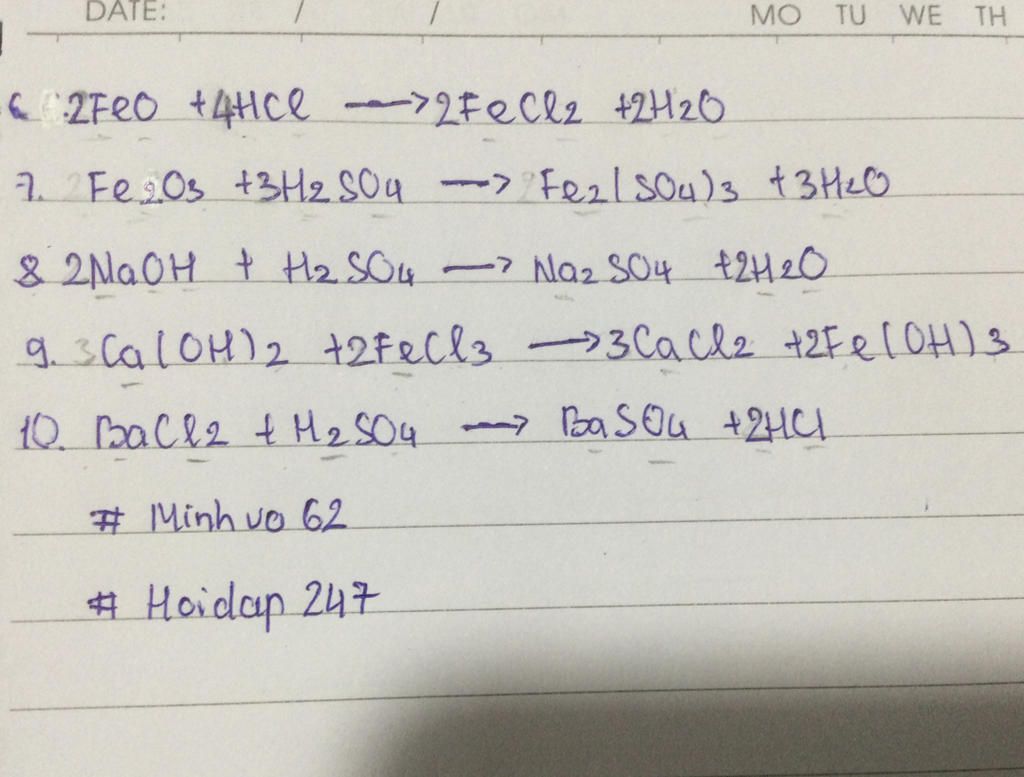 DATE: / / MO TU WE TH
6. 2FeO + 4HCl → 2FeCl2 + 2H2O
7. Fe2O3 + 3H2SO4 → Fe2(SO4)3 + 3H2O
8 2NaOH + H2SO4 → Na2SO4 + 2H2O
9. 3Ca(OH)2 + 2FeCl3 → 3CaCl2 + 2Fe(OH)3
10. BaCl2 + H2SO4 → BaSO4 + 2HCl
# Minhvo 62
# Hoidap 247